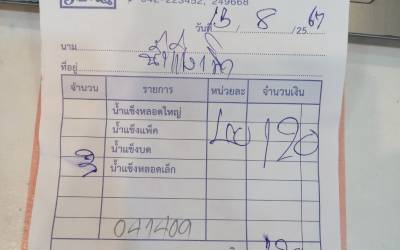 042-223452, 249668
วันที่ 13 / 8 / 2567
นาม
ที่อยู่
จำนวน รายการ หน่วยละ จำนวนเงิน
น้ำแข็งหลอดใหญ่
น้ำแข็งแพ็ค
น้ำแข็งบด
3 น้ำแข็งหลอดเล็ก 120
041409